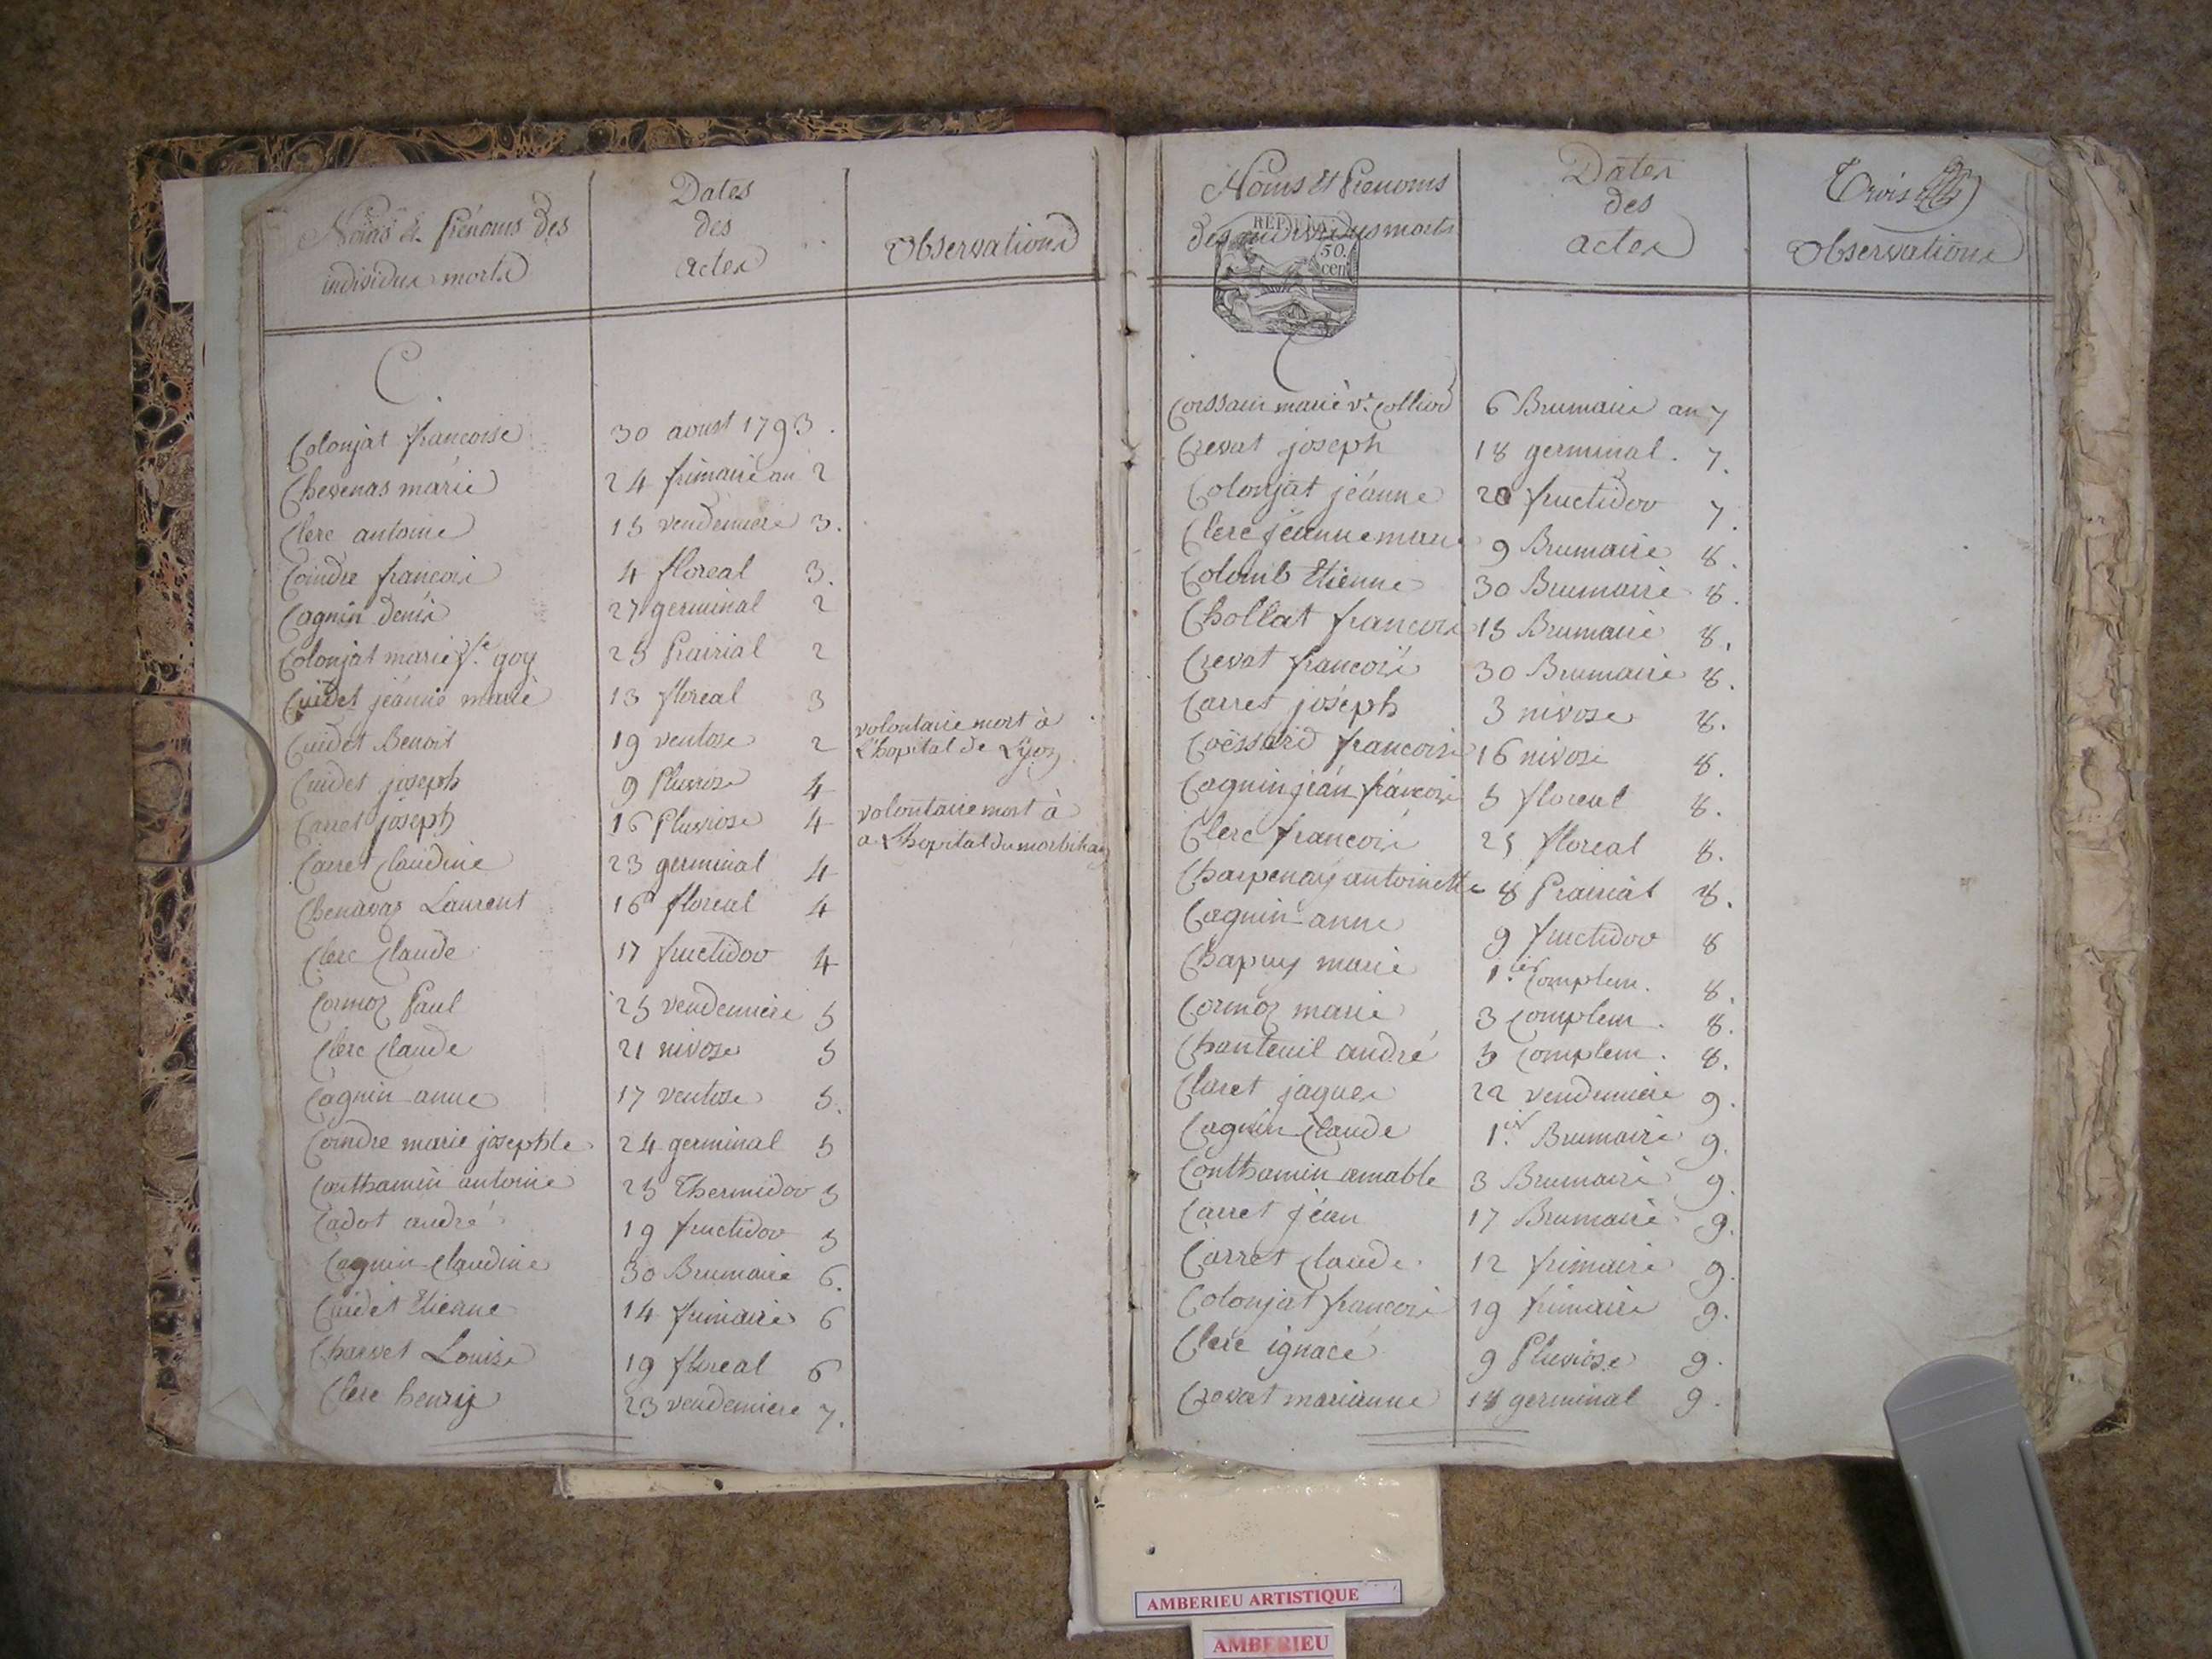 Noms et Prénoms des
individus morts
Dates
des
actes
Observations
C.
Colonjat francoise 30 aoust 1793.
Chevenas marie 24 frimaire an 2
Clerc antoine 15 vendemiere 3.
Coindre francois 4 floreal 3.
Cagnin denis 27 germinal 2
Colonjat marie fe. goy 25 Prairial 2
Cuidet jéanne marie 13 floreal 3
Cuidet Benoit 19 ventose 2 volontaire mort à
L'hopital de Lyon
Cuidet joseph 9 Pluviose 4
Carret joseph 16 Pluviose 4 volontaire mort à
a L'hopital du morbihan
Carret Claudine 23 germinal 4
Chenavaz Laurent 16 floreal 4
Clerc Claude 17 fructidor 4
Cormoz Paul 25 vendemiere 5
Clerc Claude 21 nivose 5
Cagnin anne 17 ventose 5.
Coindre marie josephte 24 germinal 5
Conthamin antoine 25 Thermidor 5
Cadot andré 19 fructidor 5
Cagnin Claudine 30 Brumaire 6.
Cuidet Etienne 14 frimaire 6
Charvet Louise 19 floreal 6
Clerc henry 23 vendemiere 7.
Noms et Prenoms
des individus morts
Dates
des
actes
Trois
Observations
REP.
50.
cen
C
marie ve. Colliod 6 Brumaire an 7
Crevat joseph 18 germinal. 7.
Colonjat jéanne 20 fructidor 7.
Clerc jéanne marie 9 Brumaire 8.
Colomb Etienne 30 Brumaire 8.
Chollat francois 15 Brumaire 8.
Crevat francois 30 Brumaire 8.
Carret joséph 3 nivose 8.
Coëssard francoise 16 nivose 8.
Cagnin jéan francois 5 floreal 8.
Clerc francois 25 floreal 8.
Charpenay antoinette 8 Prairial 8.
Cagnin anne 9 fructidor 8
Chapuy marie 1.er Complem. 8.
Cormoz marie 3 Complem. 8.
Chanteuil andré 5 Complem. 8.
Claret jaques 22 vendemiere 9.
Cagnin Claude 1.er Brumaire 9.
Conthamin amable 3 Brumaire 9.
Carret jéan 17 Brumaire 9.
Carret Claude 12 frimaire 9.
Colonjat francois 19 frimaire 9.
Clerc ignace 9 Pluviose 9.
Crevat marianne 18 germinal 9.
AMBERIEU ARTISTIQUE
AMBERIEU